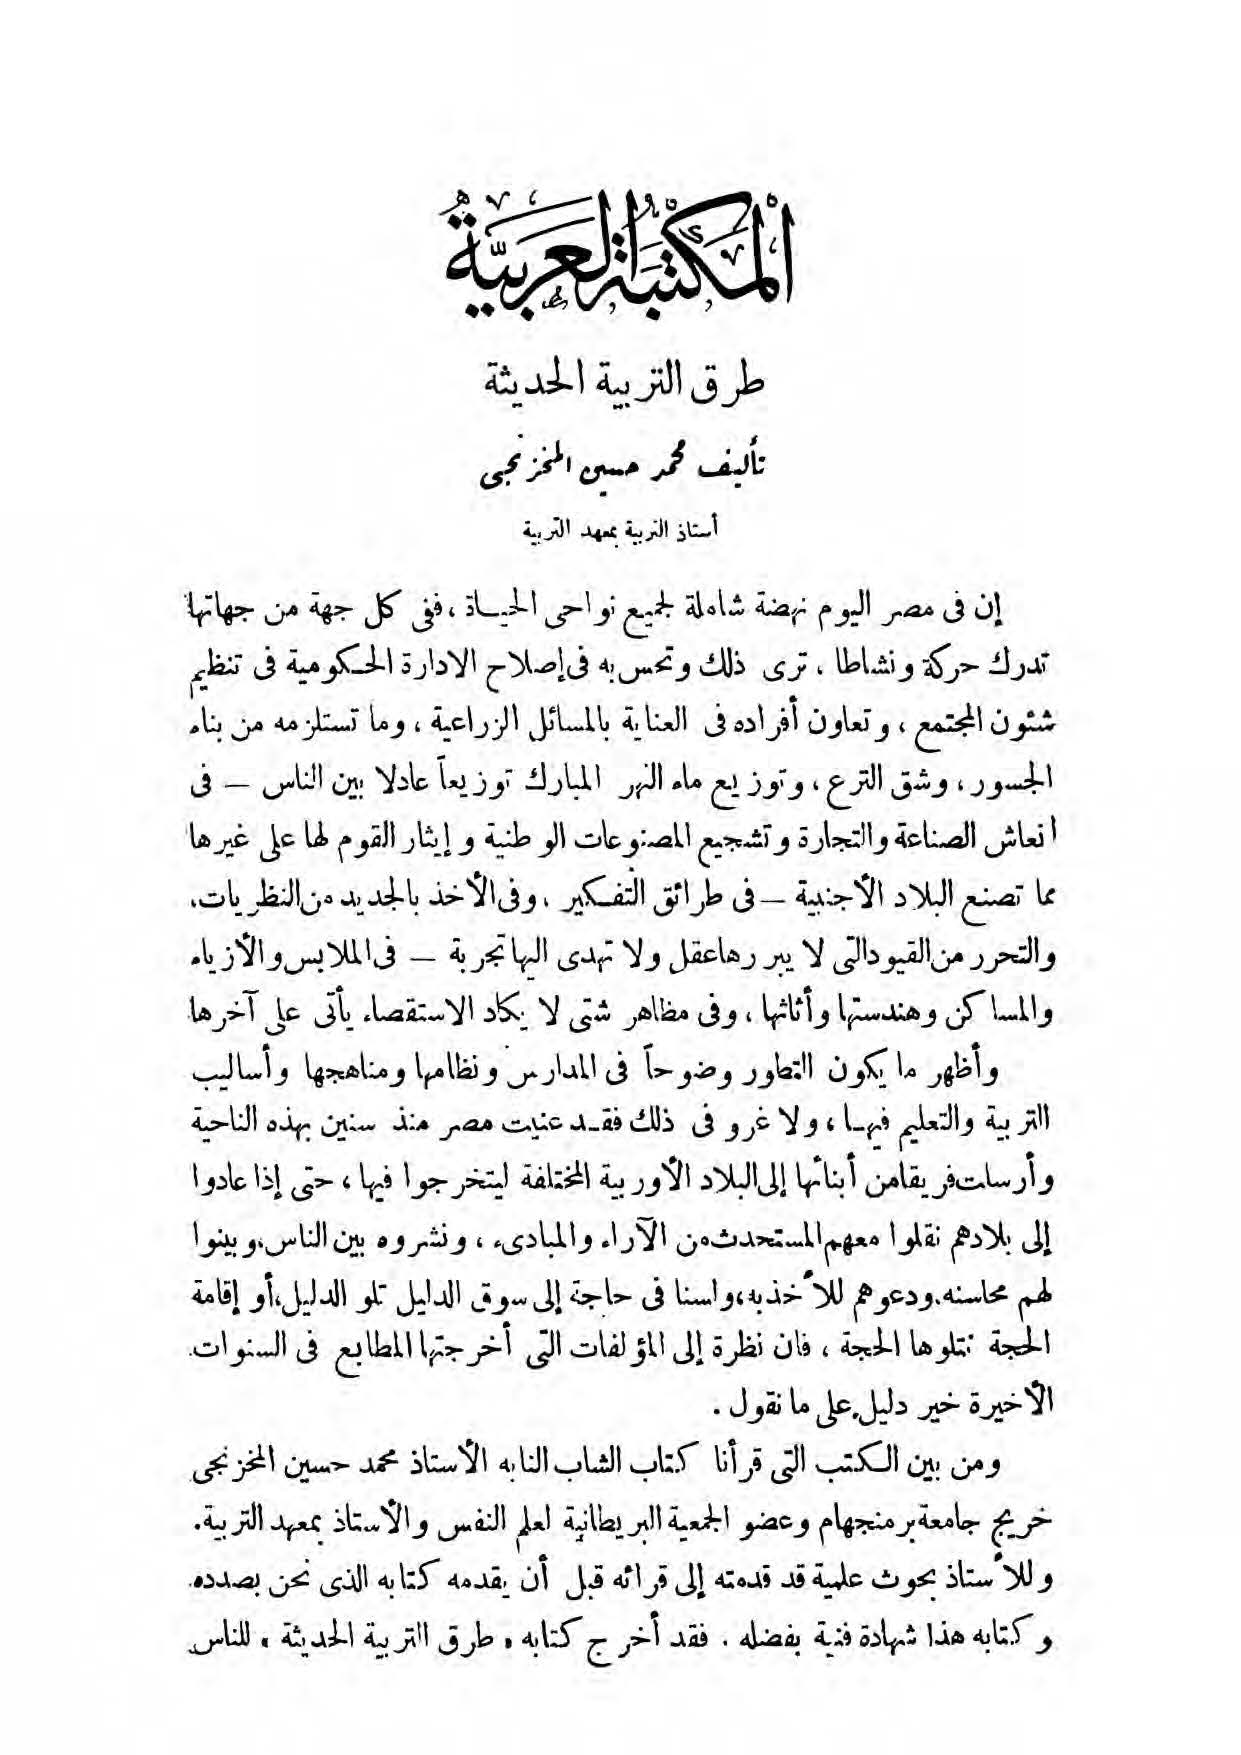 المكتبة العربية
طرق التربية الحديثة
تأليف محمد حسين المخزنجى
أستاذ التربية بمعهد التربية
إن فى مصر اليوم نهضة شاملة لجميع نواحى الحياة ، ففى كل جهة من جهاتها
تدرك حركة ونشاطا ، ترى ذلك وتحس به فى إصلاح الادارة الحكومية فى تنظيم
شئون المجتمع ، وتعاون أفراده فى العناية بالمسائل الزراعية ، وما تستلزمه من بناء
الجسور ، وشق الترع ، وتوزيع ماء النهر المبارك توزيعاً عادلا بين الناس — فى
انعاش الصناعة والتجارة وتشجيع المصنوعات الوطنية وإيثار القوم لها على غيرها
مما تصنع البلاد الأجنبية — فى طرائق التفكير ، وفى الأخذ بالجديد من النظريات،
والتحرر من القيود التى لا يبررها عقل ولا تهدى اليها تجربة — فى الملابس والأزياء
والمساكن وهندستها وأثاثها ، وفى مظاهر شتى لا يكاد الاستقصاء يأتى على آخرها
وأظهر ما يكون التطور وضوحاً فى المدارس ونظامها ومناهجها وأساليب
التربية والتعليم فيها ، ولا غرو فى ذلك فقد عنيت مصر منذ سنين بهذه الناحية
وأرسلت فريقا من أبنائها إلى البلاد الأوربية المختلفة ليتخرجوا فيها ، حتى إذا عادوا
إلى بلادهم نقلوا معهم المستحدث من الآراء والمبادىء ، ونشروه بين الناس، وبينوا
لهم محاسنه. ودعوهم للأخذ به، ولسنا فى حاجة إلى سوق الدليل تلو الدليل، أو إقامة
الحجة تتلوها الحجة ، فان نظرة إلى المؤلفات التى أخرجتها المطابع فى السنوات
الأخيرة خير دليل على ما نقول .
ومن بين الكتب التى قرأنا كتاب الشاب النابه الأستاذ محمد حسين المخزنجى
خريج جامعة برمنجهام وعضو الجمعية البريطانية لعلم النفس والأستاذ بمعهد التربية.
وللأستاذ بحوث علمية قد قدمته إلى قرائه قبل أن يقدمه كتابه الذى نحن بصدده
وكتابه هذا شهادة فنية بفضله . فقد أخرج كتابه « طرق التربية الحديثة » للناس